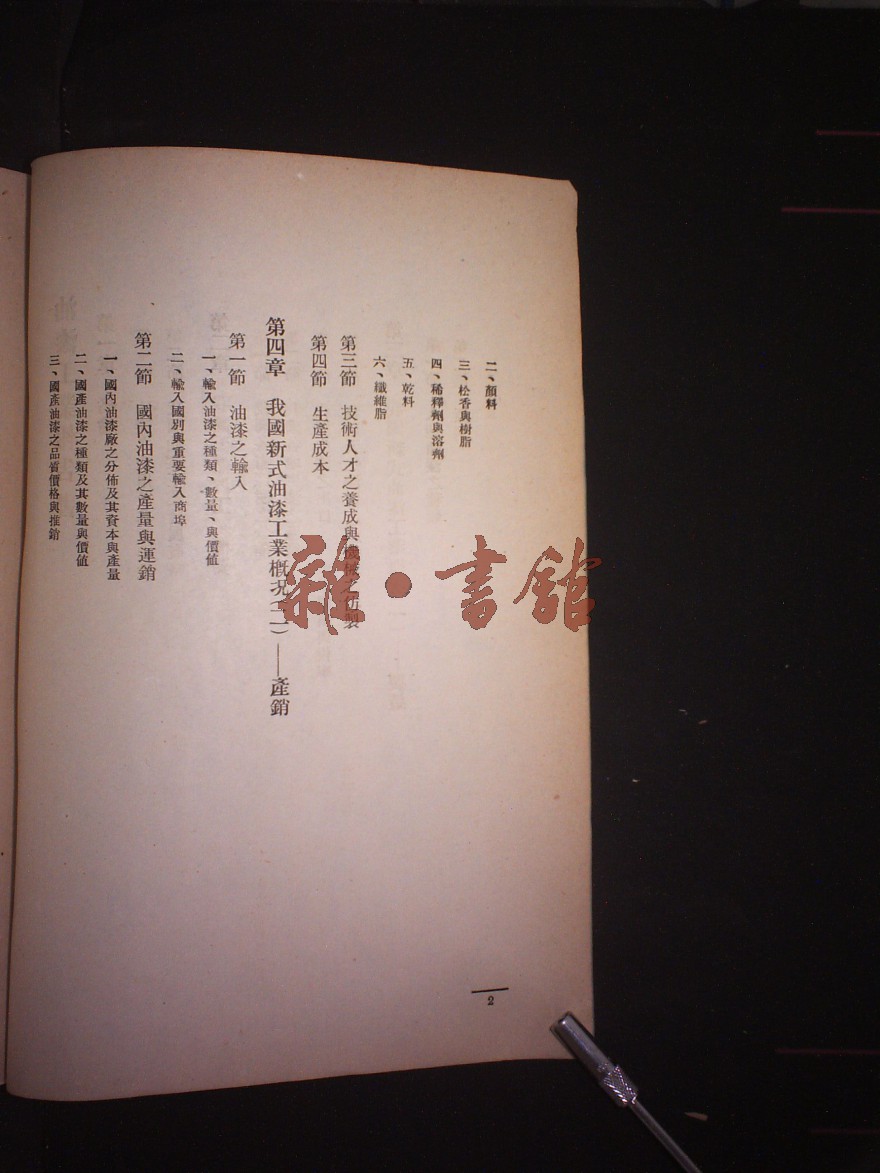 二、顏料
三、松香與樹脂
四、稀釋劑與溶劑
五、乾料
六、纖維脂
第三節 技術人才之養成與機械之仿製
第四節 生產成本
第四章 我國新式油漆工業概況(二)——產銷
第一節 油漆之輸入
一、輸入油漆之種類、數量、與價值
二、輸入國別與重要輸入商埠
第二節 國內油漆之產量與運銷
一、國內油漆廠之分佈及其資本與產量
二、國產油漆之種類及其數量與價值
三、國產油漆之品質價格與推銷
2
雜·書館